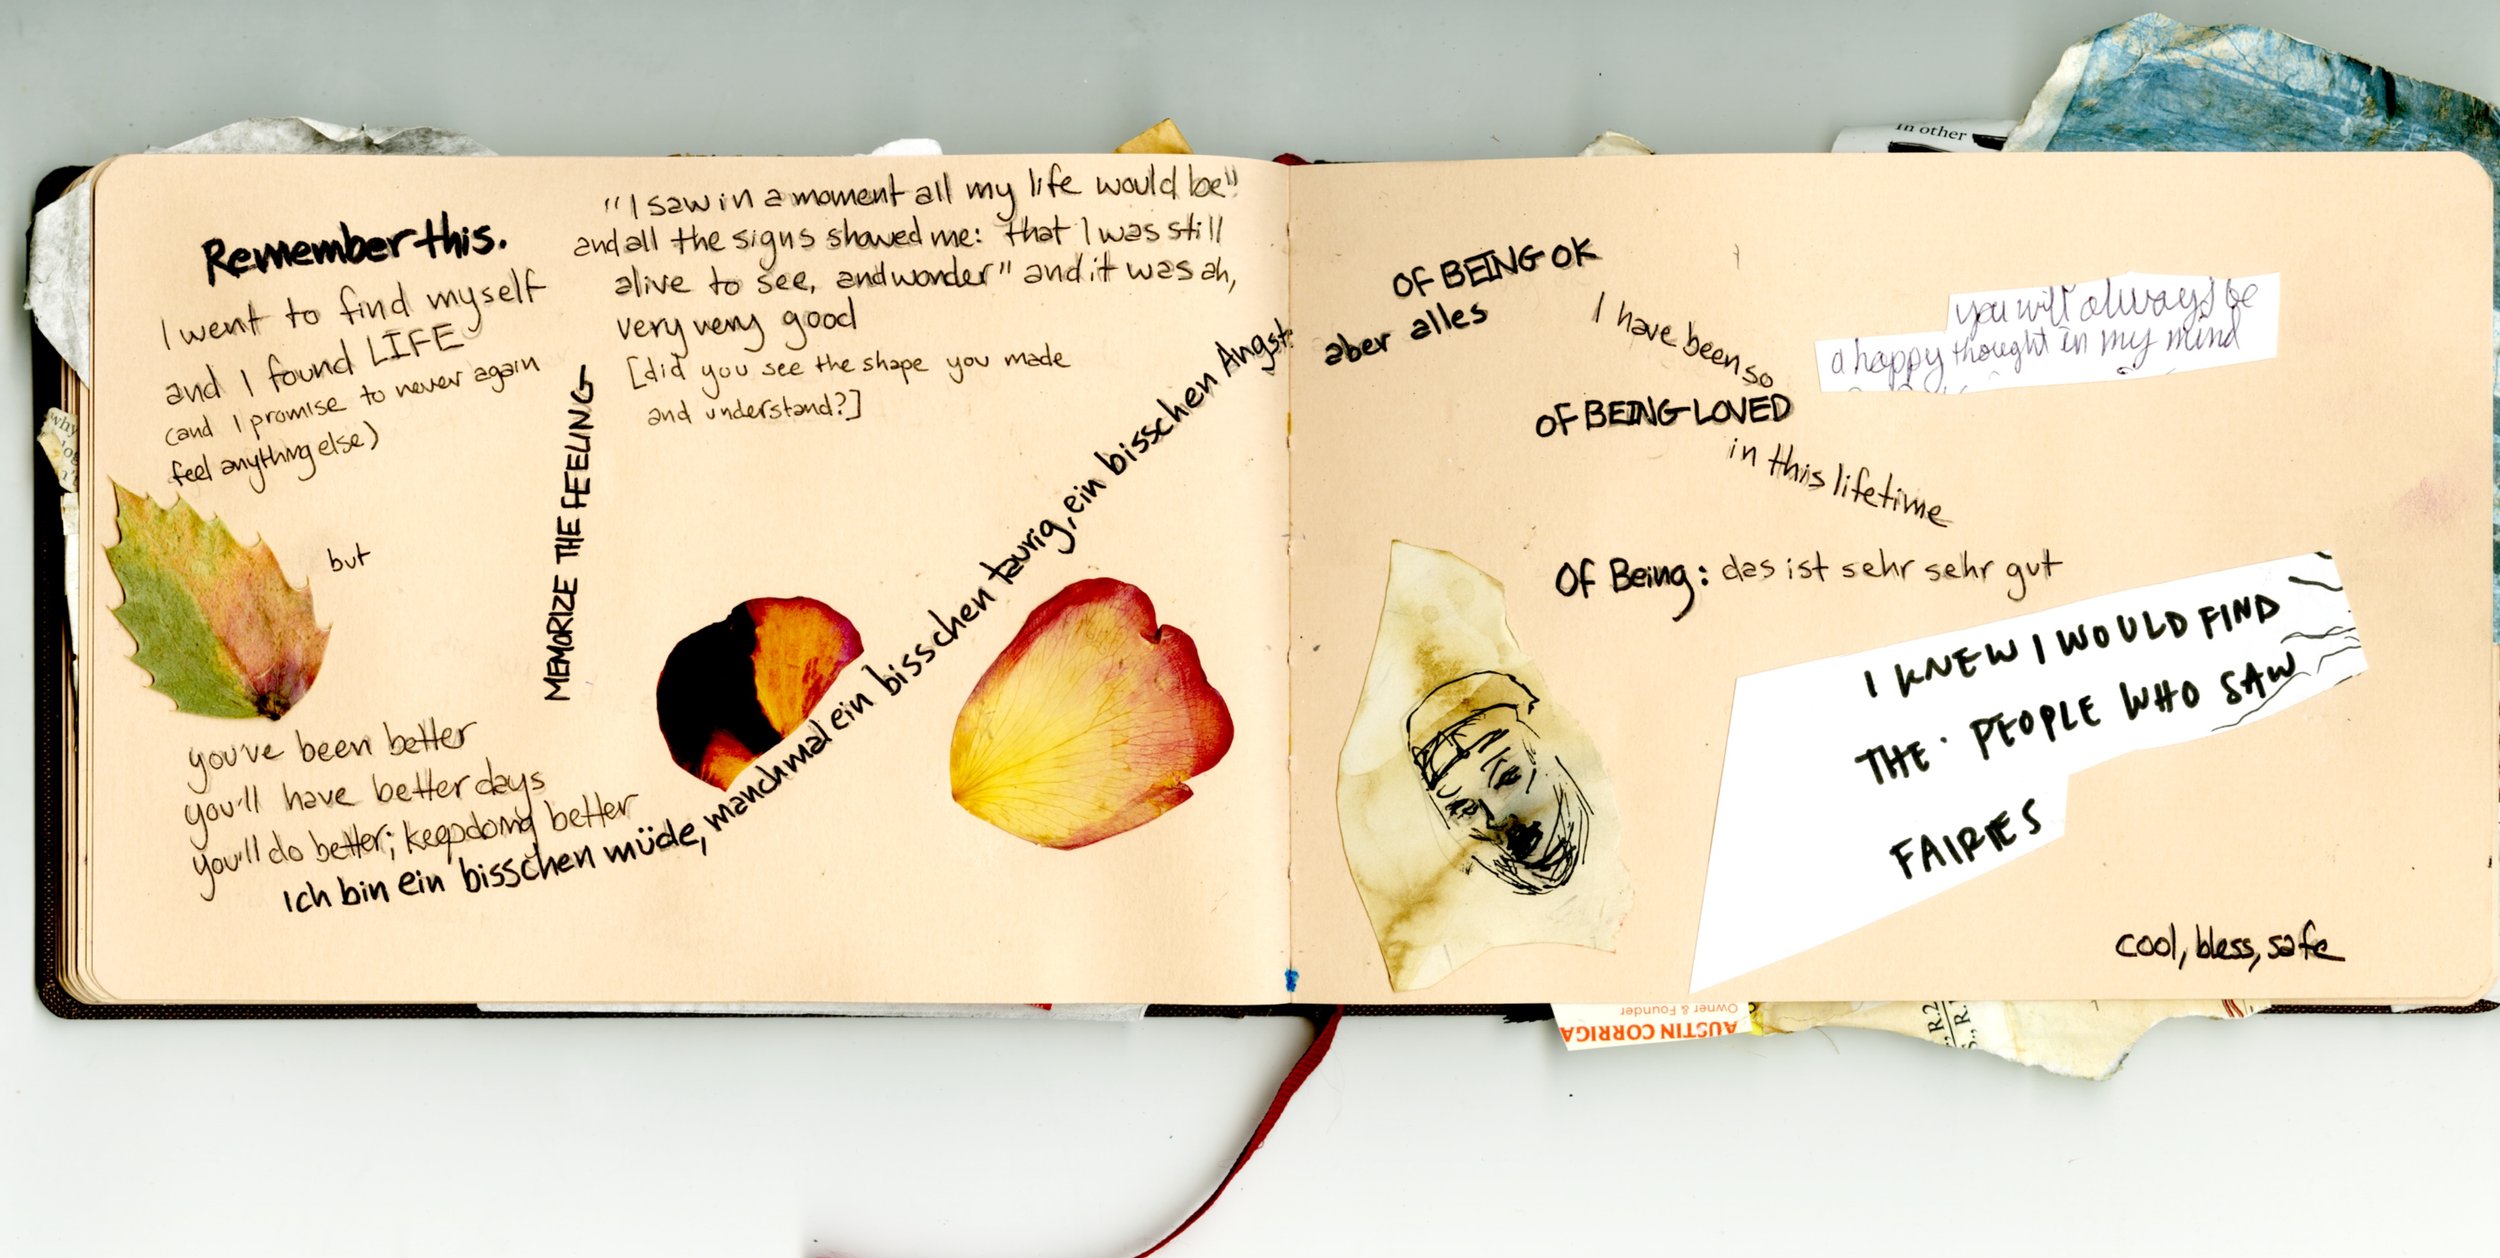 Remember this.
I went to find myself
and I found LIFE
(and I promise to never again
feel anything else)
but
you've been better
you'll have better days
you'll do better; keep doing better
MEMORIZE THE FEELING
"I saw in a moment all my life would be"
and all the signs showed me: that I was still
alive to see, and wonder" and it was ah,
very very good
[did you see the shape you made
and understand?]
Ich bin ein bisschen müde, manchmal ein bisschen taurig, ein bisschen Angst
aber alles
OF BEING OK
I have been so
OF BEING LOVED
in this lifetime
Of Being: das ist sehr sehr gut
you will always be
a happy thought in my mind
I KNEW I WOULD FIND
THE · PEOPLE WHO SAW
FAIRIES
cool, bless, safe
In other
why
AUSTIN CORRIGA
Owner & Founder